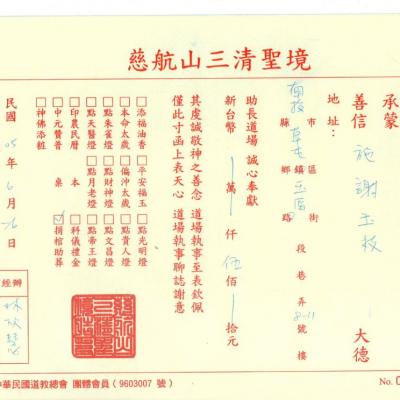 慈航山三清聖境
承蒙
善信 施謝玉枝 大德
地址：南投縣市草屯鄉鎮區玉屏路街 段 巷 弄 8-11號 樓
助長道場 誠心奉獻
新台幣 萬 仟 伍佰 拾元
其虔誠敬神之善念 道場執事至表欽佩
僅此寸函上表天心 道場執事聊誌謝意
□添福油香 □平安福玉 □點光明燈
□本命太歲 □偏沖太歲 □點貴人燈
□點朱雀燈 □點財神燈 □點文昌燈
□點天醫燈 □點月老燈 □點帝王燈
□印農民曆 □科儀禮金
□中元贊普 桌 □捐棺助葬
□神佛添粧
民國 05年 6月 26日
經辦
中華民國道教總會 團體會員（9603007 號）
No. 0